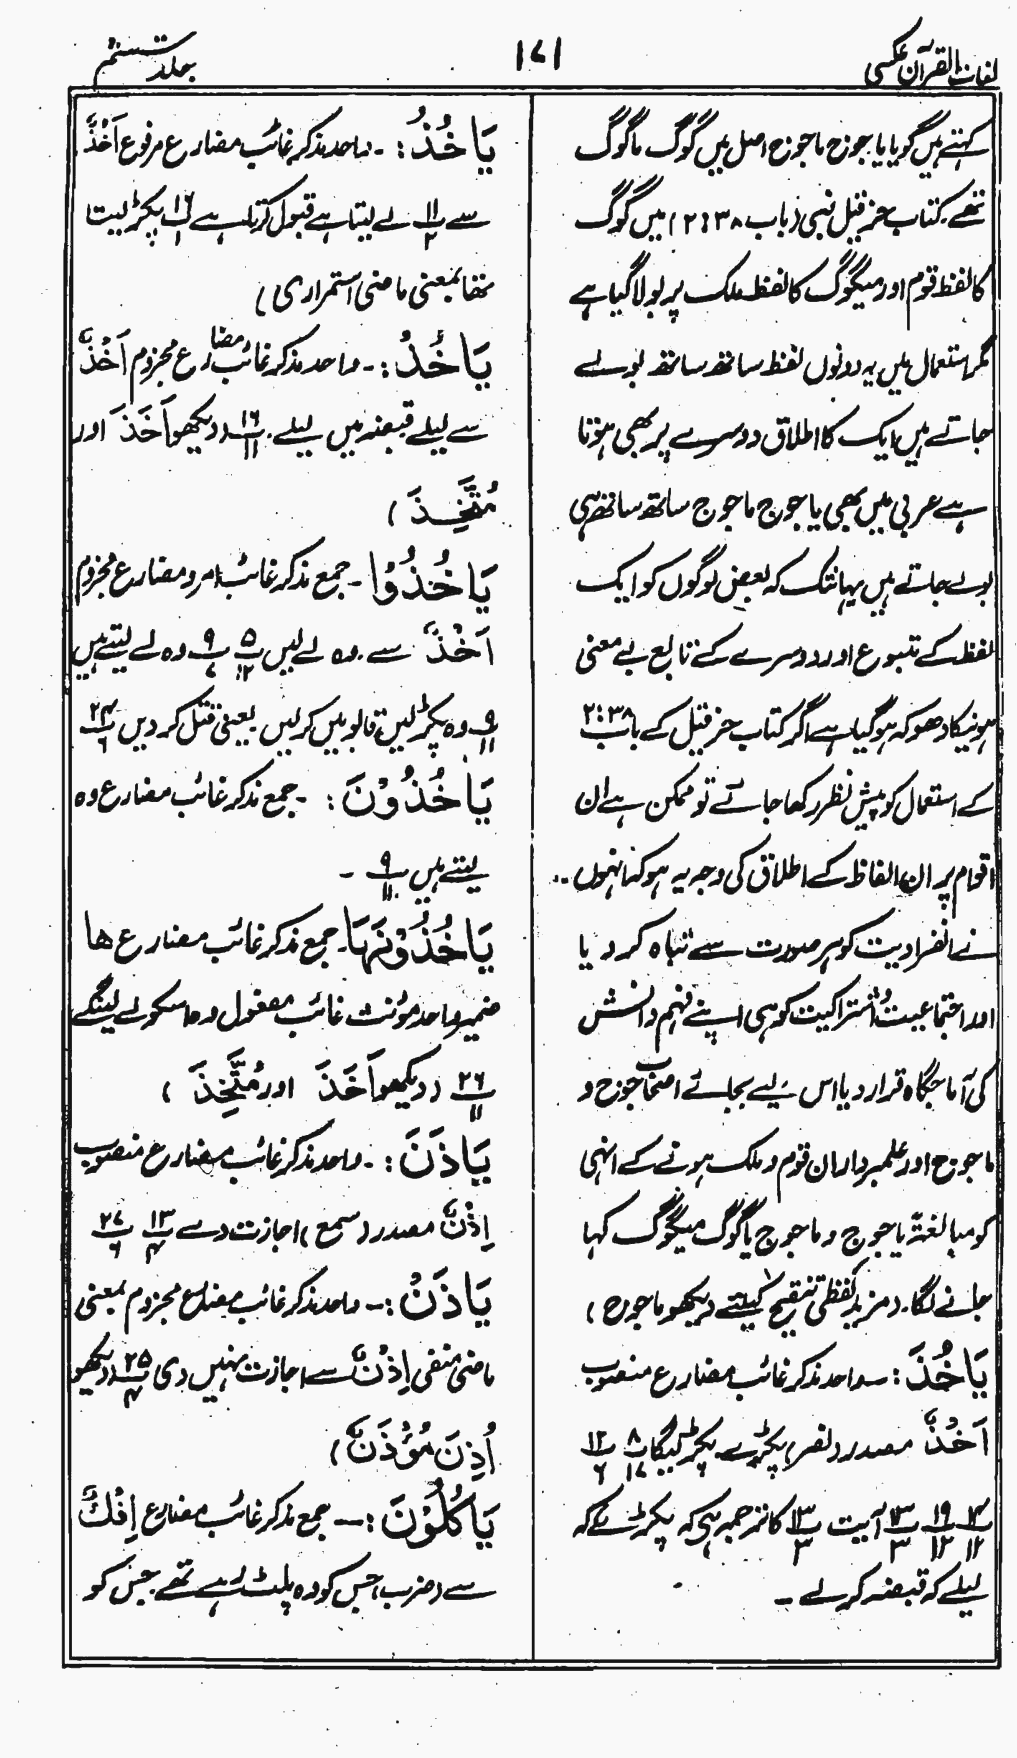 لغات القرآن عکسی
۱۷۱
جلد ششم
کہتے ہیں گویا یاجوج ماجوج اصل میں گوگ ماگوگ
تھے۔ کتاب حزقیل نبی (باب ۳۸:۲) میں گوگ
کا لفظ قوم اور میگوگ کا لفظ ملک پر بولا گیا ہے
مگر استعمال میں یہ دونوں لفظ ساتھ ساتھ بولے
جاتے ہیں ایک کا اطلاق دوسرے پر بھی ہوتا
ہے عربی میں بھی یاجوج ماجوج ساتھ ساتھ ہی
بولے جاتے ہیں یہانتک کہ بعض لوگوں کو ایک
لفظ کے متبوع اور دوسرے کے تابع بے معنی
ہونیکا دھوکہ ہوگیا ہے اگر کتاب حزقیل کے باب ۳۸:۲
کے استعمال کو پیش نظر رکھا جائے تو ممکن ہے ان
اقوام پر ان الفاظ کے اطلاق کی وجہ یہ ہو کہ انہوں
نے انفرادیت کو ہر صورت سے تباہ کر دیا
اور اجتماعیت و اشتراکیت کو ہی اپنے فہم و دانش
کی آماجگاہ قرار دیا اس لیے بجائے اصحاب جوج و
ماجوج اور علمبرداران قوم و ملک ہونے کے انہی
کو مبالغۃً یاجوج و ماجوج یا گوگ میگوگ کہا
جانے لگا۔ (مزید لفظی تنقیح کیلئے دیکھو ماجوج)
یَاخُذَ: واحد مذکر غائب مضارع منصوب
اَخْذٌ مصدر (نصر) پکڑے۔ پکڑ لیگا ۸/۱۷ ۱۲/۶
۱۴/۱۲ ۱۹/۱۲ ۱۳/۳ آیت ۱۳/۳ کا ترجمہ ہی کہ پکڑنے کہ
لیلے کہ قبضہ کرلے۔
یَاخُذُ:۔ واحد مذکر غائب مضارع مرفوع اَخْذٌ
سے ۱۱/۲ لے لیتا ہے قبول کرتا ہے ۱۶/۱ پکڑ لیتا
تھا بمعنی ماضی استمراری)
یَاخُذْ:۔ واحد مذکر غائب مضارع مجزوم اَخْذٌ
سے لیلے قبضہ میں لیلے۔ ۱۶/۱۱ (دیکھو اَخَذَ اور
مُتَّخِذَ)
یَاخُذُوْا۔ جمع مذکر غائب امر و مضارع مجزوم
اَخْذٌ سے۔ وہ لے لیں ۵/۱۲ ۹/۶ وہ لے لیتے ہیں
۹/۱۱ وہ پکڑ لیں، قابو میں کر لیں یعنی قتل کر دیں ۲۴/۶
یَاخُذُوْنَ:۔ جمع مذکر غائب مضارع وہ
لیتے ہیں ۹/۱۱۔
یَاخُذُوْنَہَا۔ جمع مذکر غائب مضارع ھا
ضمیر واحد مؤنث غائب مفعول وہ اسکو لے لینگے
۲۶/۱۱ (دیکھو اَخَذَ اور مُتَّخِذَ)
یَاذَنَ:۔ واحد مذکر غائب مضارع منصوب
اِذْنٌ مصدر (سمع) اجازت دے ۱۳/۴ ۲۷/۶
یَاذَنْ:۔ واحد مذکر غائب مضارع مجزوم بمعنی
ماضی منفی اِذْنٌ سے اجازت نہیں دی ۲۵/۴ (دیکھو
اُذِنَ مُؤَذِّنٌ)
یَاکُلُوْنَ:۔ جمع مذکر غائب مضارع اِفْکٌ
سے (ضرب) جس کو وہ پلٹ رہے تھے جس کو